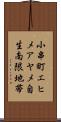 小串町エヒメアヤメ自生南限地帯